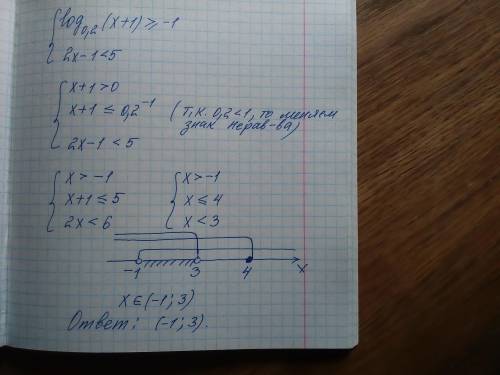 { log₀,₂(x+1) ≥ -1
2x-1<5
{ x+1>0
x+1 ≤ 0,2⁻¹ (т.к. 0,2<1, то меняем
знак нерав-ва)
2x-1 < 5
{ x > -1 { x > -1
x+1 ≤ 5 x ≤ 4
2x < 6 x < 3
-1 3 4 x
x ∈ (-1; 3)
Ответ: (-1; 3).